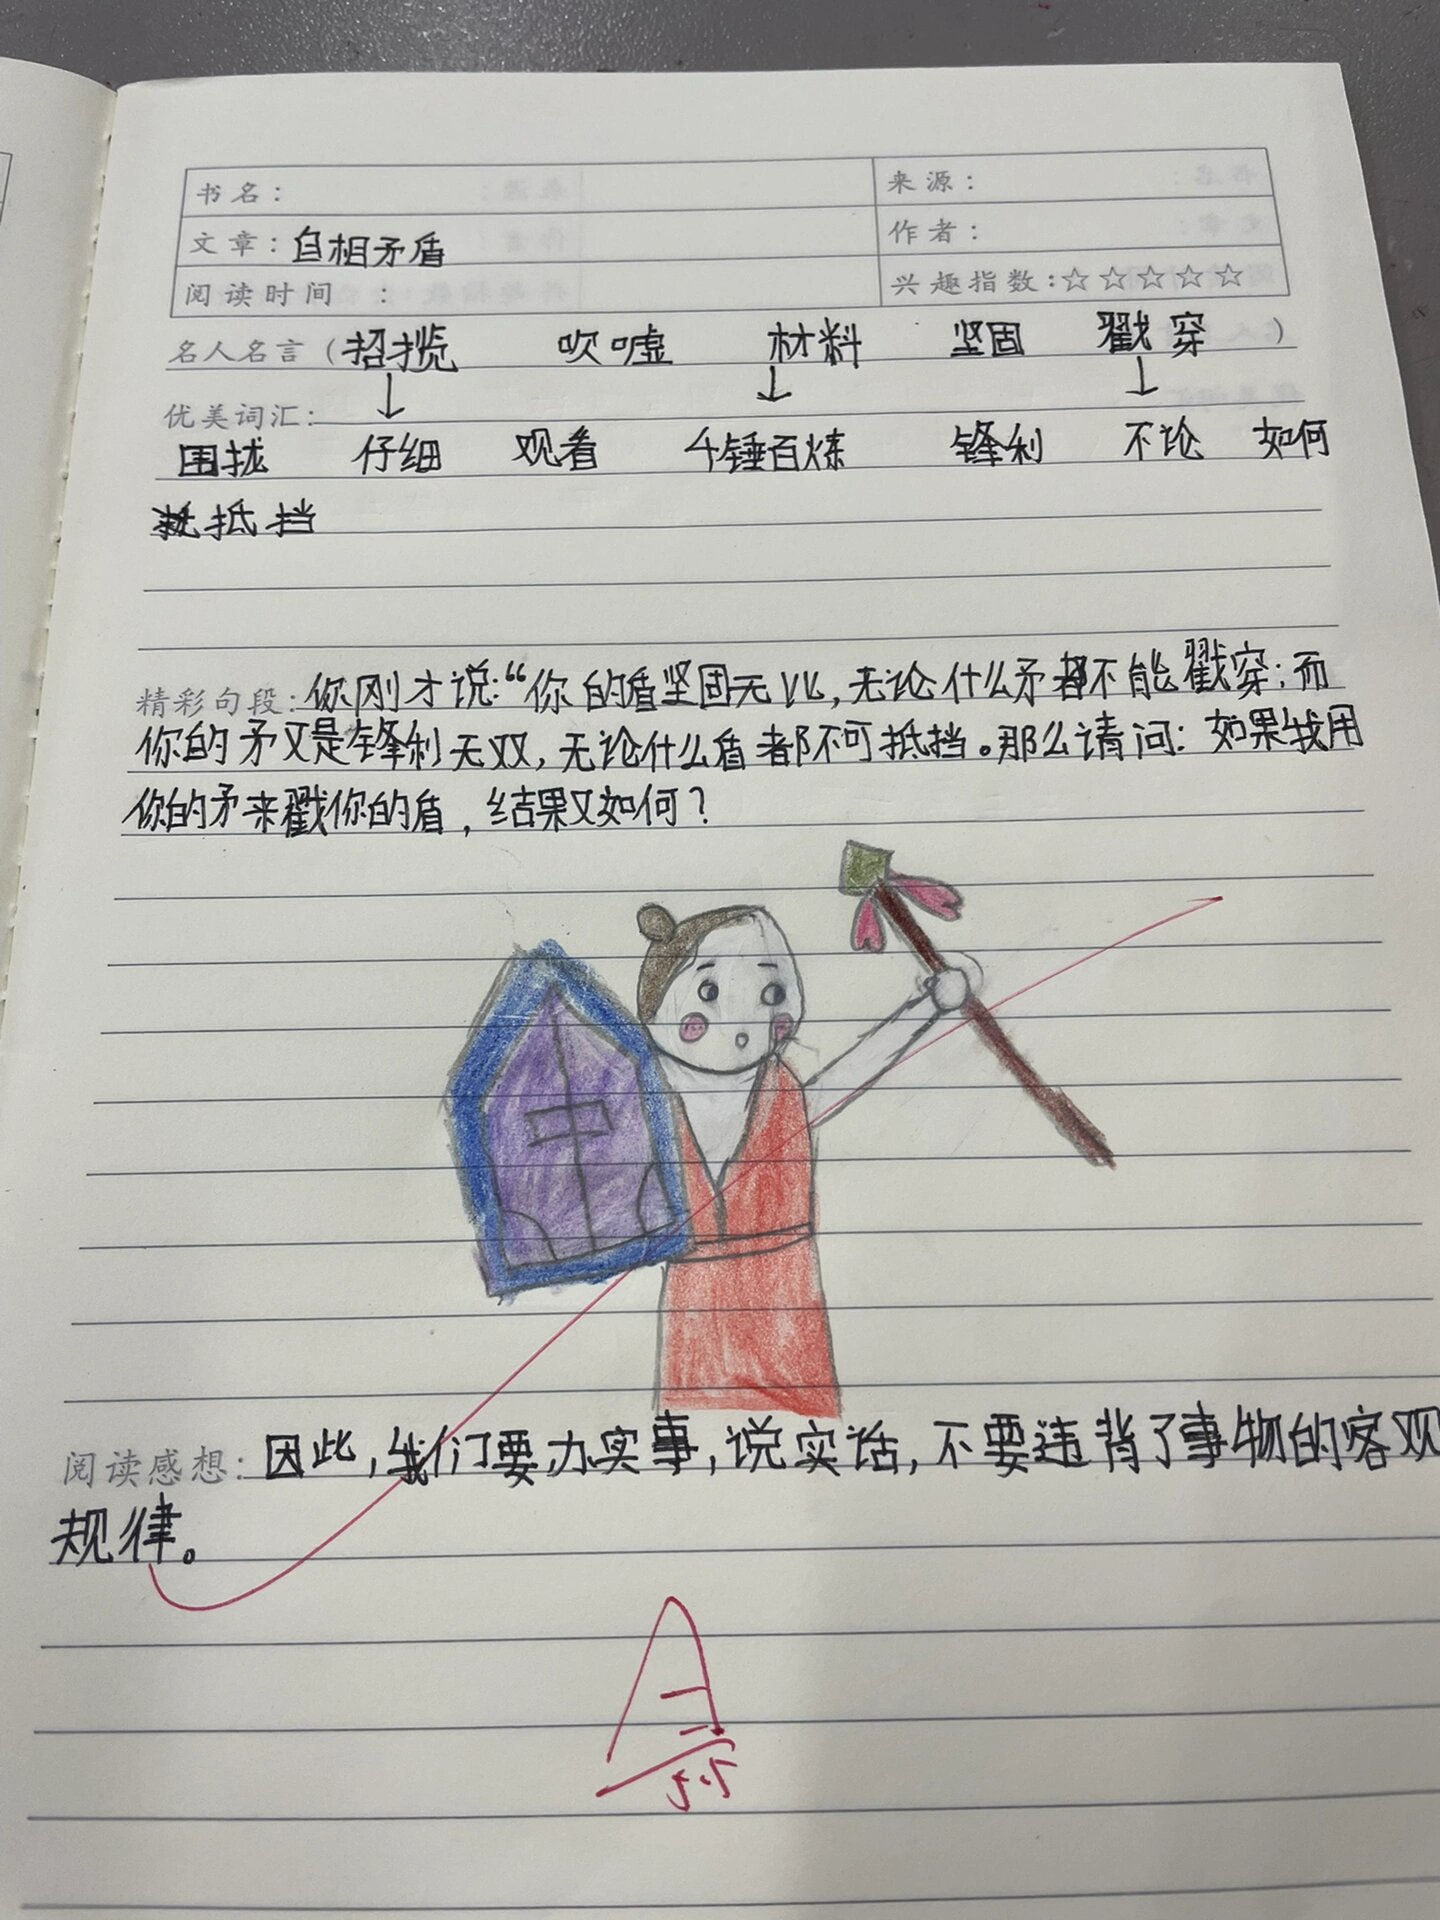 书名：
来源：
文章：自相矛盾
作者：
阅读时间：
兴趣指数：☆☆☆☆☆
名人名言（招揽 吹嘘 材料 坚固 戳穿）
↓ ↓ ↓
优美词汇：
围拢 仔细 观看 千锤百炼 锋利 不论 如何
抵挡
精彩句段：你刚才说：“你的盾坚固无比，无论什么矛都不能戳穿；而
你的矛又是锋利无双，无论什么盾都不可抵挡。那么请问：如果我用
你的矛来戳你的盾，结果又如何？
阅读感想：因此，我们要办实事，说实话，不要违背了事物的客观
规律。
A
5.5